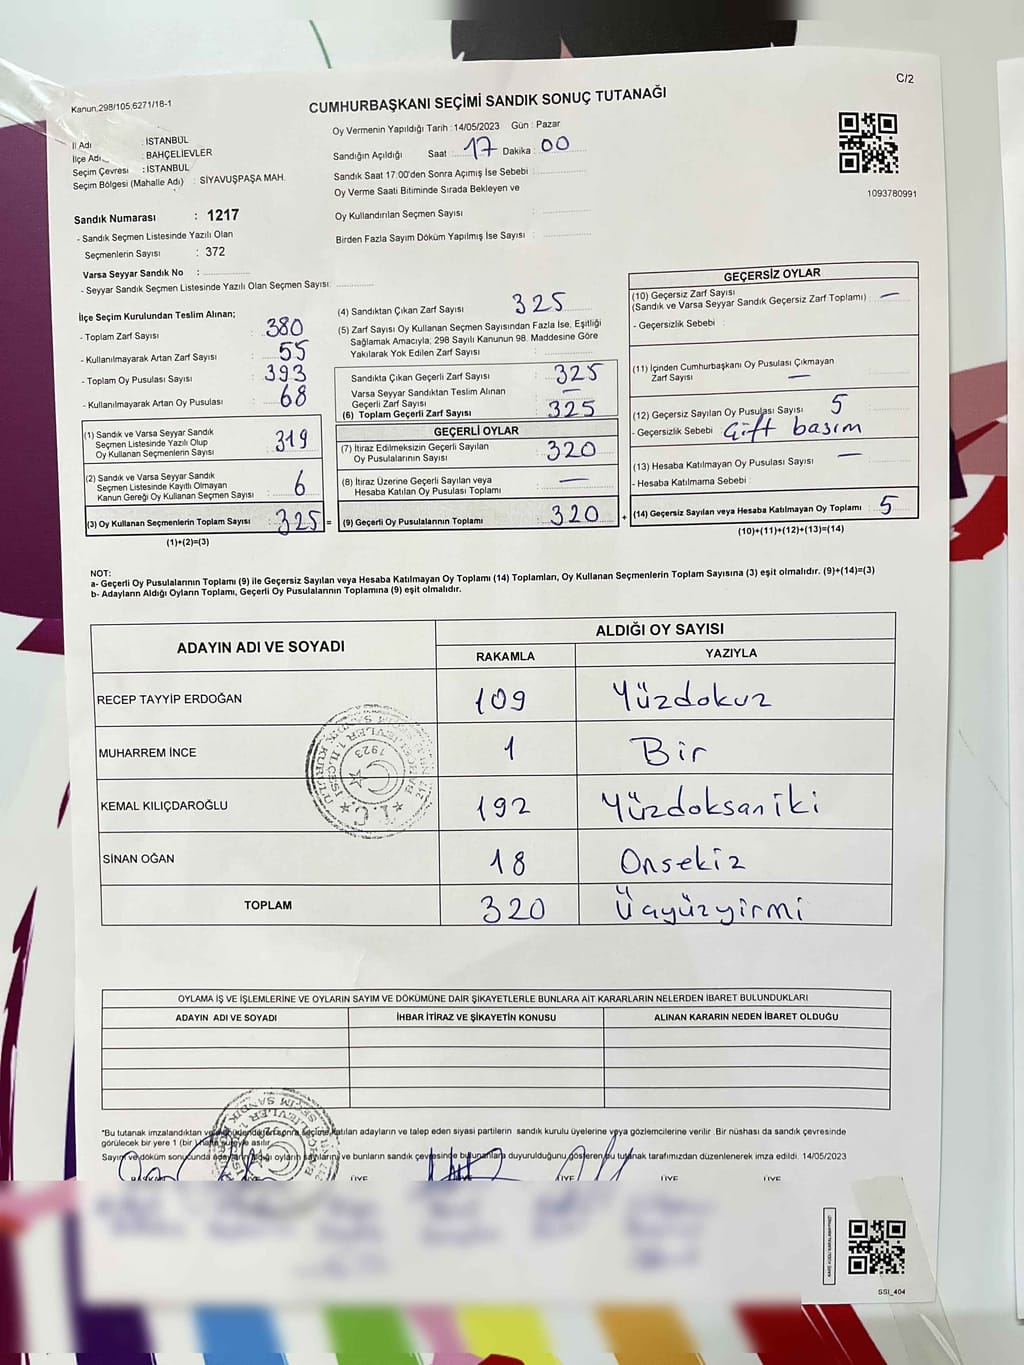 C/2
Kanun,298/105,6271/18-1
CUMHURBAŞKANI SEÇİMİ SANDIK SONUÇ TUTANAĞI
İl Adı : İSTANBUL
İlçe Adı : BAHÇELİEVLER
Seçim Çevresi : İSTANBUL
Seçim Bölgesi (Mahalle Adı) : SİYAVUŞPAŞA MAH.
Oy Vermenin Yapıldığı Tarih : 14/05/2023 Gün : Pazar
Sandığın Açıldığı Saat : 17 Dakika : 00
Sandık Saat 17:00'den Sonra Açımış İse Sebebi :
Oy Verme Saati Bitiminde Sırada Bekleyen ve
Oy Kullandırılan Seçmen Sayısı :
Birden Fazla Sayım Döküm Yapılmış İse Sayısı :
1093780991
Sandık Numarası : 1217
- Sandık Seçmen Listesinde Yazılı Olan
Seçmenlerin Sayısı : 372
Varsa Seyyar Sandık No :
- Seyyar Sandık Seçmen Listesinde Yazılı Olan Seçmen Sayısı:
İlçe Seçim Kurulundan Teslim Alınan;
- Toplam Zarf Sayısı : 380
- Kullanılmayarak Artan Zarf Sayısı : 55
- Toplam Oy Pusulası Sayısı : 393
- Kullanılmayarak Artan Oy Pusulası : 68
(1) Sandık ve Varsa Seyyar Sandık
Seçmen Listesinde Yazılı Olup
Oy Kullanan Seçmenlerin Sayısı : 319
(2) Sandık ve Varsa Seyyar Sandık
Seçmen Listesinde Kayıtlı Olmayan
Kanun Gereği Oy Kullanan Seçmen Sayısı : 6
(3) Oy Kullanan Seçmenlerin Toplam Sayısı : 325 =
(1)+(2)=(3)
(4) Sandıktan Çıkan Zarf Sayısı : 325
(5) Zarf Sayısı Oy Kullanan Seçmen Sayısından Fazla İse, Eşitliği
Sağlamak Amacıyla; 298 Sayılı Kanunun 98. Maddesine Göre
Yakılarak Yok Edilen Zarf Sayısı :
Sandıkta Çıkan Geçerli Zarf Sayısı : 325
Varsa Seyyar Sandıktan Teslim Alınan
Geçerli Zarf Sayısı : —
(6) Toplam Geçerli Zarf Sayısı : 325
GEÇERLİ OYLAR
(7) İtiraz Edilmeksizin Geçerli Sayılan
Oy Pusulalarının Sayısı : 320
(8) İtiraz Üzerine Geçerli Sayılan veya
Hesaba Katılan Oy Pusulası Toplamı : —
(9) Geçerli Oy Pusulalarının Toplamı : 320 +
GEÇERSİZ OYLAR
(10) Geçersiz Zarf Sayısı
(Sandık ve Varsa Seyyar Sandık Geçersiz Zarf Toplamı) : —
- Geçersizlik Sebebi :
(11) İçinden Cumhurbaşkanı Oy Pusulası Çıkmayan
Zarf Sayısı : —
(12) Geçersiz Sayılan Oy Pusulası Sayısı : 5
- Geçersizlik Sebebi : Çift basım
(13) Hesaba Katılmayan Oy Pusulası Sayısı : —
- Hesaba Katılmama Sebebi :
(14) Geçersiz Sayılan veya Hesaba Katılmayan Oy Toplamı : 5
(10)+(11)+(12)+(13)=(14)
NOT:
a- Geçerli Oy Pusulalarının Toplamı (9) ile Geçersiz Sayılan veya Hesaba Katılmayan Oy Toplamı (14) Toplamları, Oy Kullanan Seçmenlerin Toplam Sayısına (3) eşit olmalıdır. (9)+(14)=(3)
b- Adayların Aldığı Oyların Toplamı, Geçerli Oy Pusulalarının Toplamına (9) eşit olmalıdır.
ADAYIN ADI VE SOYADI
ALDIĞI OY SAYISI
RAKAMLA YAZIYLA
RECEP TAYYİP ERDOĞAN 109 Yüzdokuz
MUHARREM İNCE 1 Bir
KEMAL KILIÇDAROĞLU 192 Yüzdoksaniki
SİNAN OĞAN 18 Onsekiz
TOPLAM 320 Üçyüzyirmi
T.C.
1923
OYLAMA İŞ VE İŞLEMLERİNE VE OYLARIN SAYIM VE DÖKÜMÜNE DAİR ŞİKAYETLERLE BUNLARA AİT KARARLARIN NELERDEN İBARET BULUNDUKLARI
ADAYIN ADI VE SOYADI İHBAR İTİRAZ VE ŞİKAYETİN KONUSU ALINAN KARARIN NEDEN İBARET OLDUĞU
*Bu tutanak imzalandıktan sonra seçime katılan adayların ve talep eden siyasi partilerin sandık kurulu üyelerine veya gözlemcilerine verilir. Bir nüshası da sandık çevresinde
görülecek bir yere 1 (bir) hafta süreyle asılır.
Sayım ve döküm sonucunda adayların aldığı oyların sayılarını ve bunların sandık çevresinde bulunanlara duyurulduğunu gösteren bu tutanak tarafımızdan düzenlenerek imza edildi. 14/05/2023
BAŞKAN ÜYE ÜYE ÜYE ÜYE
SSI_404